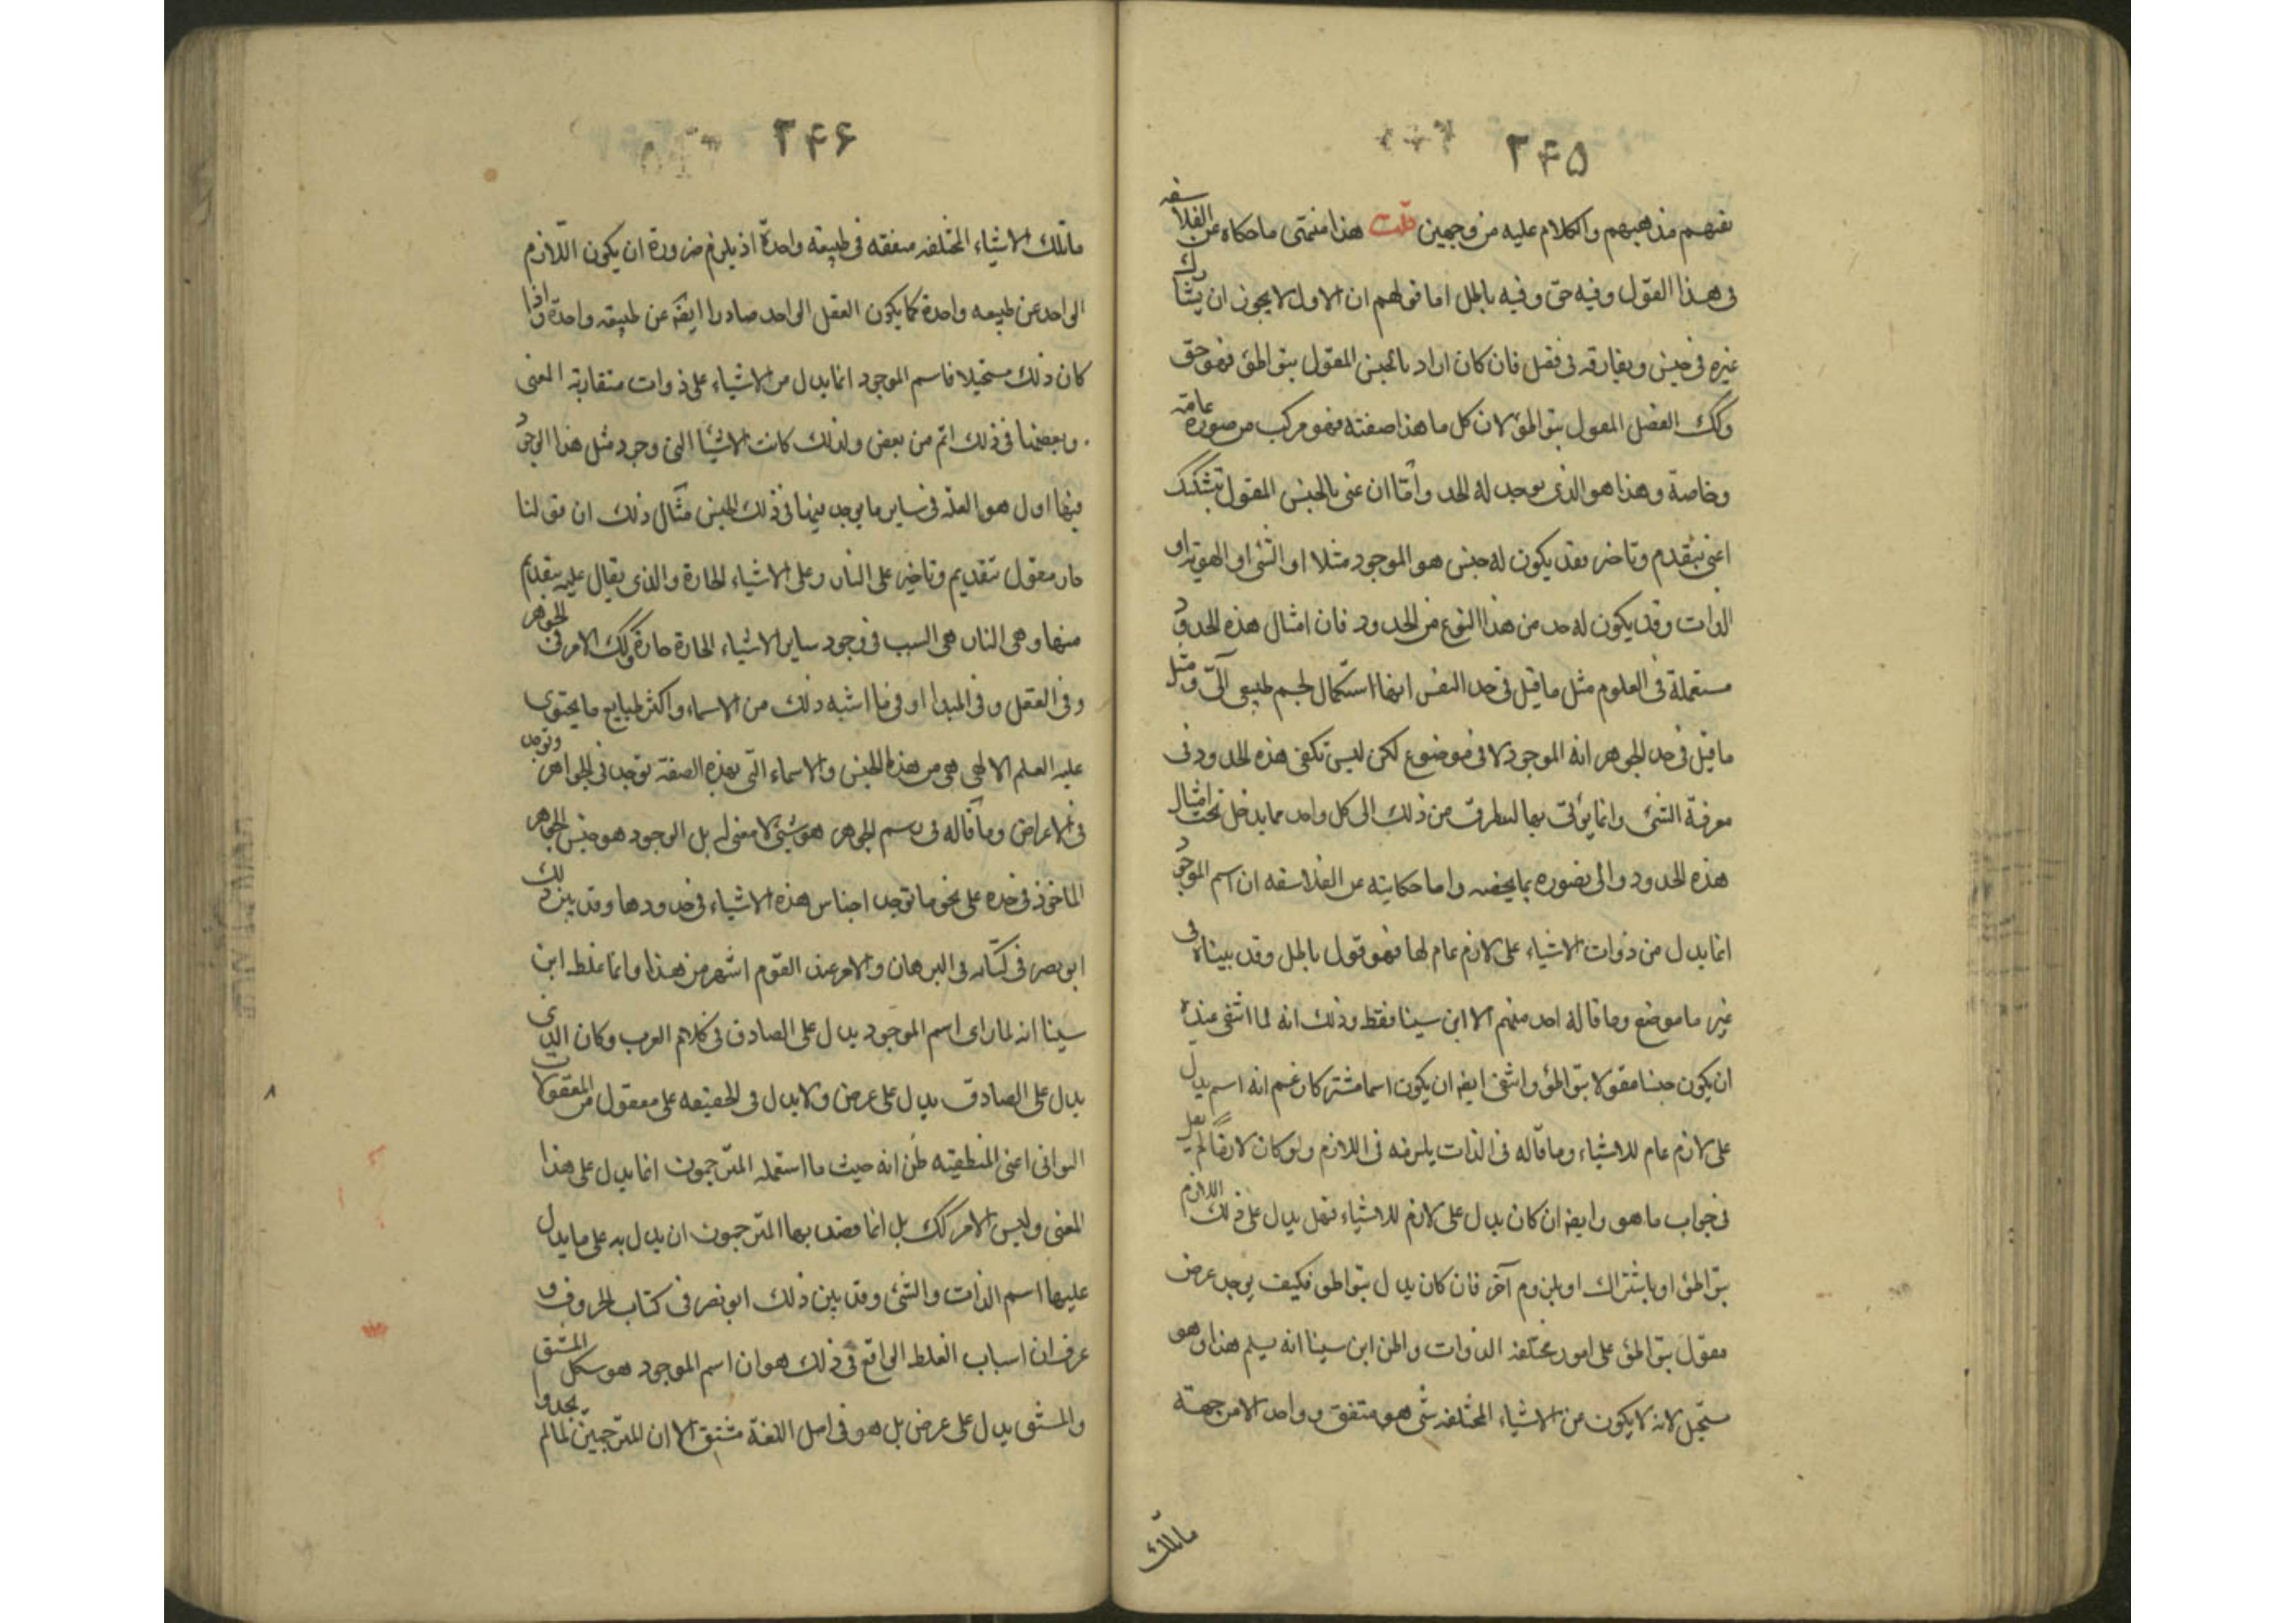 ٢۴۵
تفهم مذهبهم والكلام عليه من وجهين قلت هذا منتهى ما حكاه عن الفلاسفه
فى هذا القول وفيه حق وفيه باطل اما قولهم ان الاول لا يجوز ان يشارك
غيره فى جنس ويفارقه فى فصل فان كان اراد بالجنس المقول بتواطئ فهو حق
وكك الفصل المقول بتواطئ لان كل ما هذا صفته فهو مركب من صورة عامة
وخاصة وهذا هو الذى يوجد له الحد وأمّا ان عنى بالجنس المقول بتشكك
اعنى بتقدم وتاخر فقد يكون له جنس هو الموجود مثلا او الشئ او الهوية او
الذات وقد يكون له حد من هذا النوع من الحدود فان امثال هذه الحدود
مستعملة فى العلوم مثل ما قيل فى حد النفس انها استكمال لجسم طبيعى آلىّ ومثل
ما قيل فى حد الجوهر انه الموجود لا فى موضوع لكن ليس تكفى هذه الحدود فى
معرفة الشئ وانما يؤتى بها ليتطرق من ذلك الى كل واحد مما يدخل تحت امثال
هذه الحدود والى تصوره بما يخصه واما حكايته عن الفلاسفه ان اسم الموجود
انما يدل من ذوات الاشياء على لازم عام لها فهو قول باطل وقد بيناه فى
غير ما موضع وما قاله احد منهم الا ابن سينا فقط وذلك انه لما انتفى عنده
ان يكون جنسا مقولا بتواطئ وانتفى ايضه ان يكون اسما مشتركا زعم انه اسم يدل
على لازم عام للاشياء وما قاله فى الذات يلزمه فى اللازم ولو كان لازما لم يقل
فى جواب ما هو وايضه ان كان يدل على لازم للاشياء فهل يدل على ذلك اللازم
بتواطئ او باشتراك او بلزوم آخر فان كان يدل بتواطئ فكيف يوجد عرض
مقول بتواطئ على امور مختلفه الذوات واظن ابن سينا انه يسلم هذا وهو
مستحيل لانه لا يكون من الاشياء المختلفه شئ هو متفق وواحد الا من جهة
ماتلك
٢۴۶
ماتلك الاشياء المختلفه متفقه فى طبيعه واحدة اذ يلزم ضرورة ان يكون اللازم
الواحد عن طبيعه واحدة كما يكون الفعل الواحد صادرا ايضه عن طبيعه واحدة واذا
كان ذلك مستحيلا فاسم الموجود انما يدل من الاشياء على ذوات متقاربة المعنى
وبعضها فى ذلك اتم من بعض ولذلك كانت الاشيا التى وجود مثل هذا الوجود
فيها اول هو العلّه فى ساير ما يوجد فيها فى ذلك الجنس مثال ذلك ان قولنا
حار مقول بتقديم وتاخير على النار وعلى الاشياء الحارة والذى يقال عليه بتقديم
منها وهى النار هى السبب فى وجود ساير الاشياء الحارة حارة وكك الامر فى الجوهر
وفى العقل وفى المبدا او فى ما اشبه ذلك من الاسماء واكثر طبايع ما يحتوى
عليه العلم الالهى هى من هذا الجنس والاسماء التى بهذه الصفة توجد فى الجواهر وتوجد
فى الاعراض وما قاله فى رسم الجوهر هو شئ لا معنى له بل الوجود هو جنس الجوهر
الماخوذ فى حده على نحو ما توجد اجناس هذه الاشياء فى حدودها وقد بين ذلك
ابو نصر فى كتابه فى البرهان والامر عند القوم اشهر من هذا وانما غلط ابن
سينا انه لما راى اسم الموجود يدل على الصادق فى كلام العرب وكان الذى
يدل على الصادق يدل على عرض ولا يدل فى الحقيقه على معقول من المعقولات
الثوانى اعنى المنطقيّه ظن انه حيث ما استعمله المترجمون انما يدل على هذا
المعنى وليس الامر كك بل انما قصد بها المترجمون ان يدل به على ما يدل
عليها اسم الذات والشئ وقد بين ذلك ابو نصر فى كتاب الحروف و
عرف ان اسباب الغلط الواقع فى ذلك هو ان اسم الموجود هو بشكل المشتق
والمشتق يدل على عرض بل هو فى اصل اللغة مشتق الا ان المترجمين لما لم يجدوا